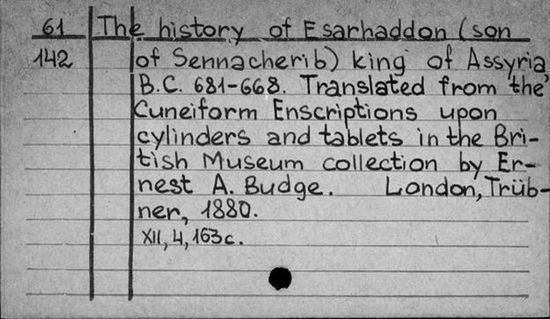 61 The history of Esarhaddon (son
142 of Sennacherib) king of Assyria,
B.C. 681-668. Translated from the
Cuneiform Enscriptions upon
cylinders and tablets in the Bri-
tish Museum collection by Er-
nest A. Budge. London, Trüb-
ner, 1880.
XII, 4, 163 c.